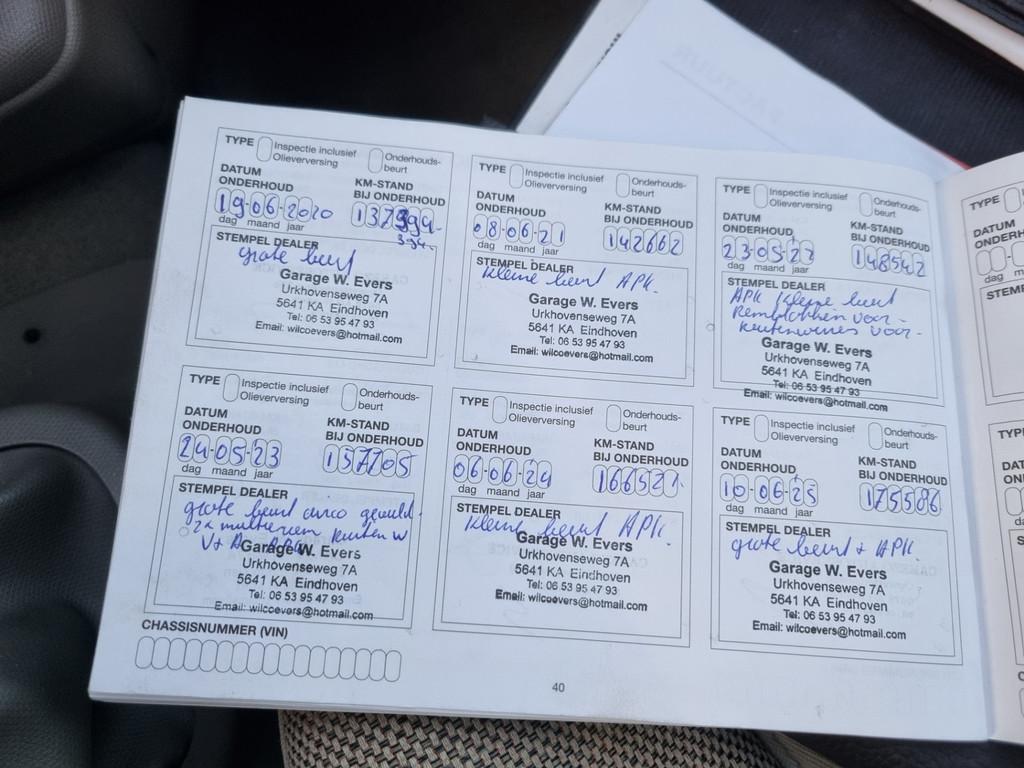 TYPE Inspectie inclusief Olieverversing Onderhouds-beurt
DATUM ONDERHOUD
KM-STAND BIJ ONDERHOUD
19-06-2020
137394-
394.
dag maand jaar
STEMPEL DEALER
grote beurt
Garage W. Evers
Urkhovenseweg 7A
5641 KA Eindhoven
Tel: 06 53 95 47 93
Email: wilcoevers@hotmail.com
TYPE Inspectie inclusief Olieverversing Onderhouds-beurt
DATUM ONDERHOUD
KM-STAND BIJ ONDERHOUD
08-06-21
142662
dag maand jaar
STEMPEL DEALER
kleine beurt APK.
Garage W. Evers
Urkhovenseweg 7A
5641 KA Eindhoven
Tel: 06 53 95 47 93
Email: wilcoevers@hotmail.com
TYPE Inspectie inclusief Olieverversing Onderhouds-beurt
DATUM ONDERHOUD
KM-STAND BIJ ONDERHOUD
23-05-22
148542
dag maand jaar
STEMPEL DEALER
APK kleine beurt
Remblokken voor-
ruitenwissers voor-
Garage W. Evers
Urkhovenseweg 7A
5641 KA Eindhoven
Tel: 06 53 95 47 93
Email: wilcoevers@hotmail.com
TYPE Inspectie inclusief Olieverversing Onderhouds-beurt
DATUM ONDERHOUD
KM-STAND BIJ ONDERHOUD
24-05-23
157705
dag maand jaar
STEMPEL DEALER
grote beurt airco gevuld.
2x multiriem ruiten w
V+A APK
Garage W. Evers
Urkhovenseweg 7A
5641 KA Eindhoven
Tel: 06 53 95 47 93
Email: wilcoevers@hotmail.com
TYPE Inspectie inclusief Olieverversing Onderhouds-beurt
DATUM ONDERHOUD
KM-STAND BIJ ONDERHOUD
06-06-24
166527
dag maand jaar
STEMPEL DEALER
kleine beurt APK.
Garage W. Evers
Urkhovenseweg 7A
5641 KA Eindhoven
Tel: 06 53 95 47 93
Email: wilcoevers@hotmail.com
TYPE Inspectie inclusief Olieverversing Onderhouds-beurt
DATUM ONDERHOUD
KM-STAND BIJ ONDERHOUD
10-06-25
175586
dag maand jaar
STEMPEL DEALER
grote beurt + APK.
Garage W. Evers
Urkhovenseweg 7A
5641 KA Eindhoven
Tel: 06 53 95 47 93
Email: wilcoevers@hotmail.com
CHASSISNUMMER (VIN)
40